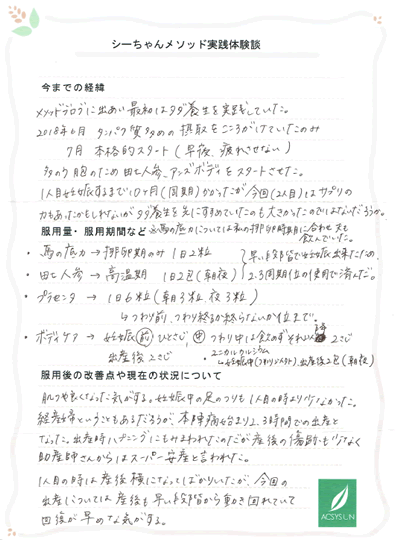 シーちゃんメソッド実践体験談
今までの経緯
メソッドブログに出あい最初はタダ養生を実践していた。
2018年6月 タンパク質多めの摂取をこころがけていたのみ
7月 本格的スタート(早夜、疲れさせない)
多のう胞のため田七人参、アンズボディをスタートさせた。
1人目妊娠するまで10ヶ月(周期)かかったが今回(2人目)はサプリの
力もあったかもしれないがタダ養生を先にすすめていたのも大きかったのではないだろうか。
服用量・服用期間など
馬の底力については私の排卵時期に合わせ夫も飲んでいた。
・馬の底力 → 排卵期のみ 1日2粒
・田七人参 → 高温期 1日2包(朝夜)
早い段階で妊娠出来たため、
2.3周期位の使用で済んだ。
・プラセンタ → 1日6粒(朝3粒、夜3粒)
つわり前、つわり終るか終らないか位まで。
・ボディケア → 妊娠前ひとさじ、中つわり中は飲めずそれ以降2さじ
出産後2さじ
ユニカルカルシウム
妊娠中(つわり以外) 出産後2包(朝夜)
服用後の改善点や現在の状況について
肌つや良くなった気がする。妊娠中の足のつりも1人目の時より少なかった。
経産婦ということもあるだろうが、本陣痛始まり2、3時間での出産と
なった。出産時ハプニングにもみまわれたのだが産後の傷跡も少なく
助産師さんからはスーパー安産と言われた。
1人目の時は産後横になってばかりいたが、今回の
出産については産後も早い段階から動き回れていて
回復が早のような気がする。
ACSYSLIN